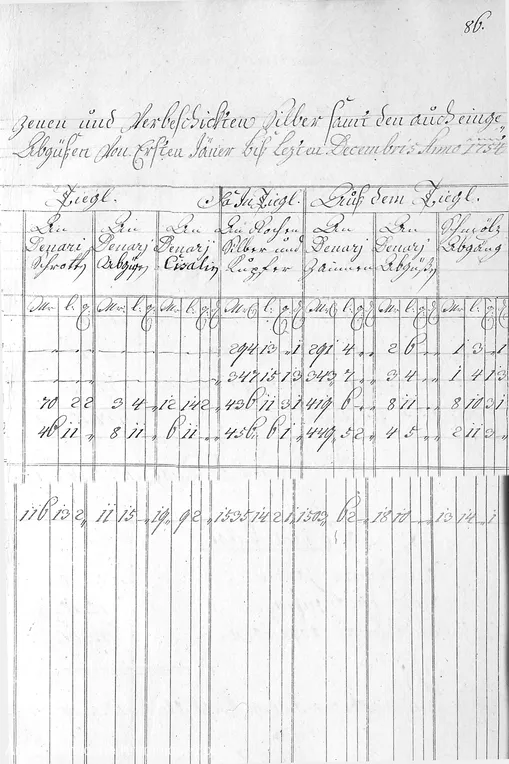 86.
zenen und Verbeschickten Silber samt den auch einge„
Abgüßen Von Ersten Jäner biß Lezten Decembris Anno 1754
Tiegl. Tiegl. Auß dem Tiegl.
An An An An Kochen An An Schmölz
Denari Denarj Denarj Silber und Denarj Denarj Abgang
Schrott Abgüß Cisalin Kupfer Zainnen Abgüß
294 13 „ 1 291 4 „ „ 2 6 „ „ 1 3 „ 1
347 15 1 3 343 7 „ „ 3 4 „ „ 1 4 1 3
70 2 2 3 4 „ 12 14 2 436 11 3 1 419 6 „ „ 8 11 „ „ 8 10 3 1
46 11 „ 8 11 „ 6 11 „ 456 6 1 „ 449 5 2 „ 4 5 „ „ 2 11 3 „
116 13 2 11 15 „ 19 9 2 1535 14 2 1 1503 6 2 „ 18 10 „ „ 13 14 „ 1